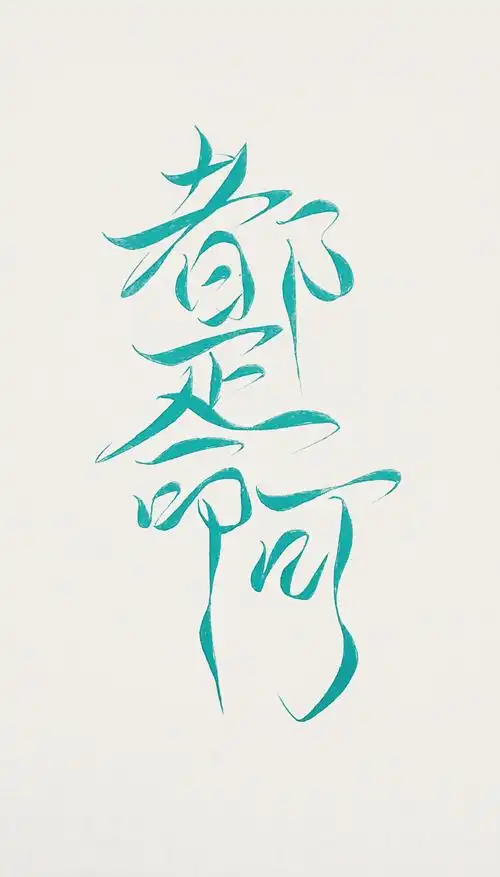 都是命啊